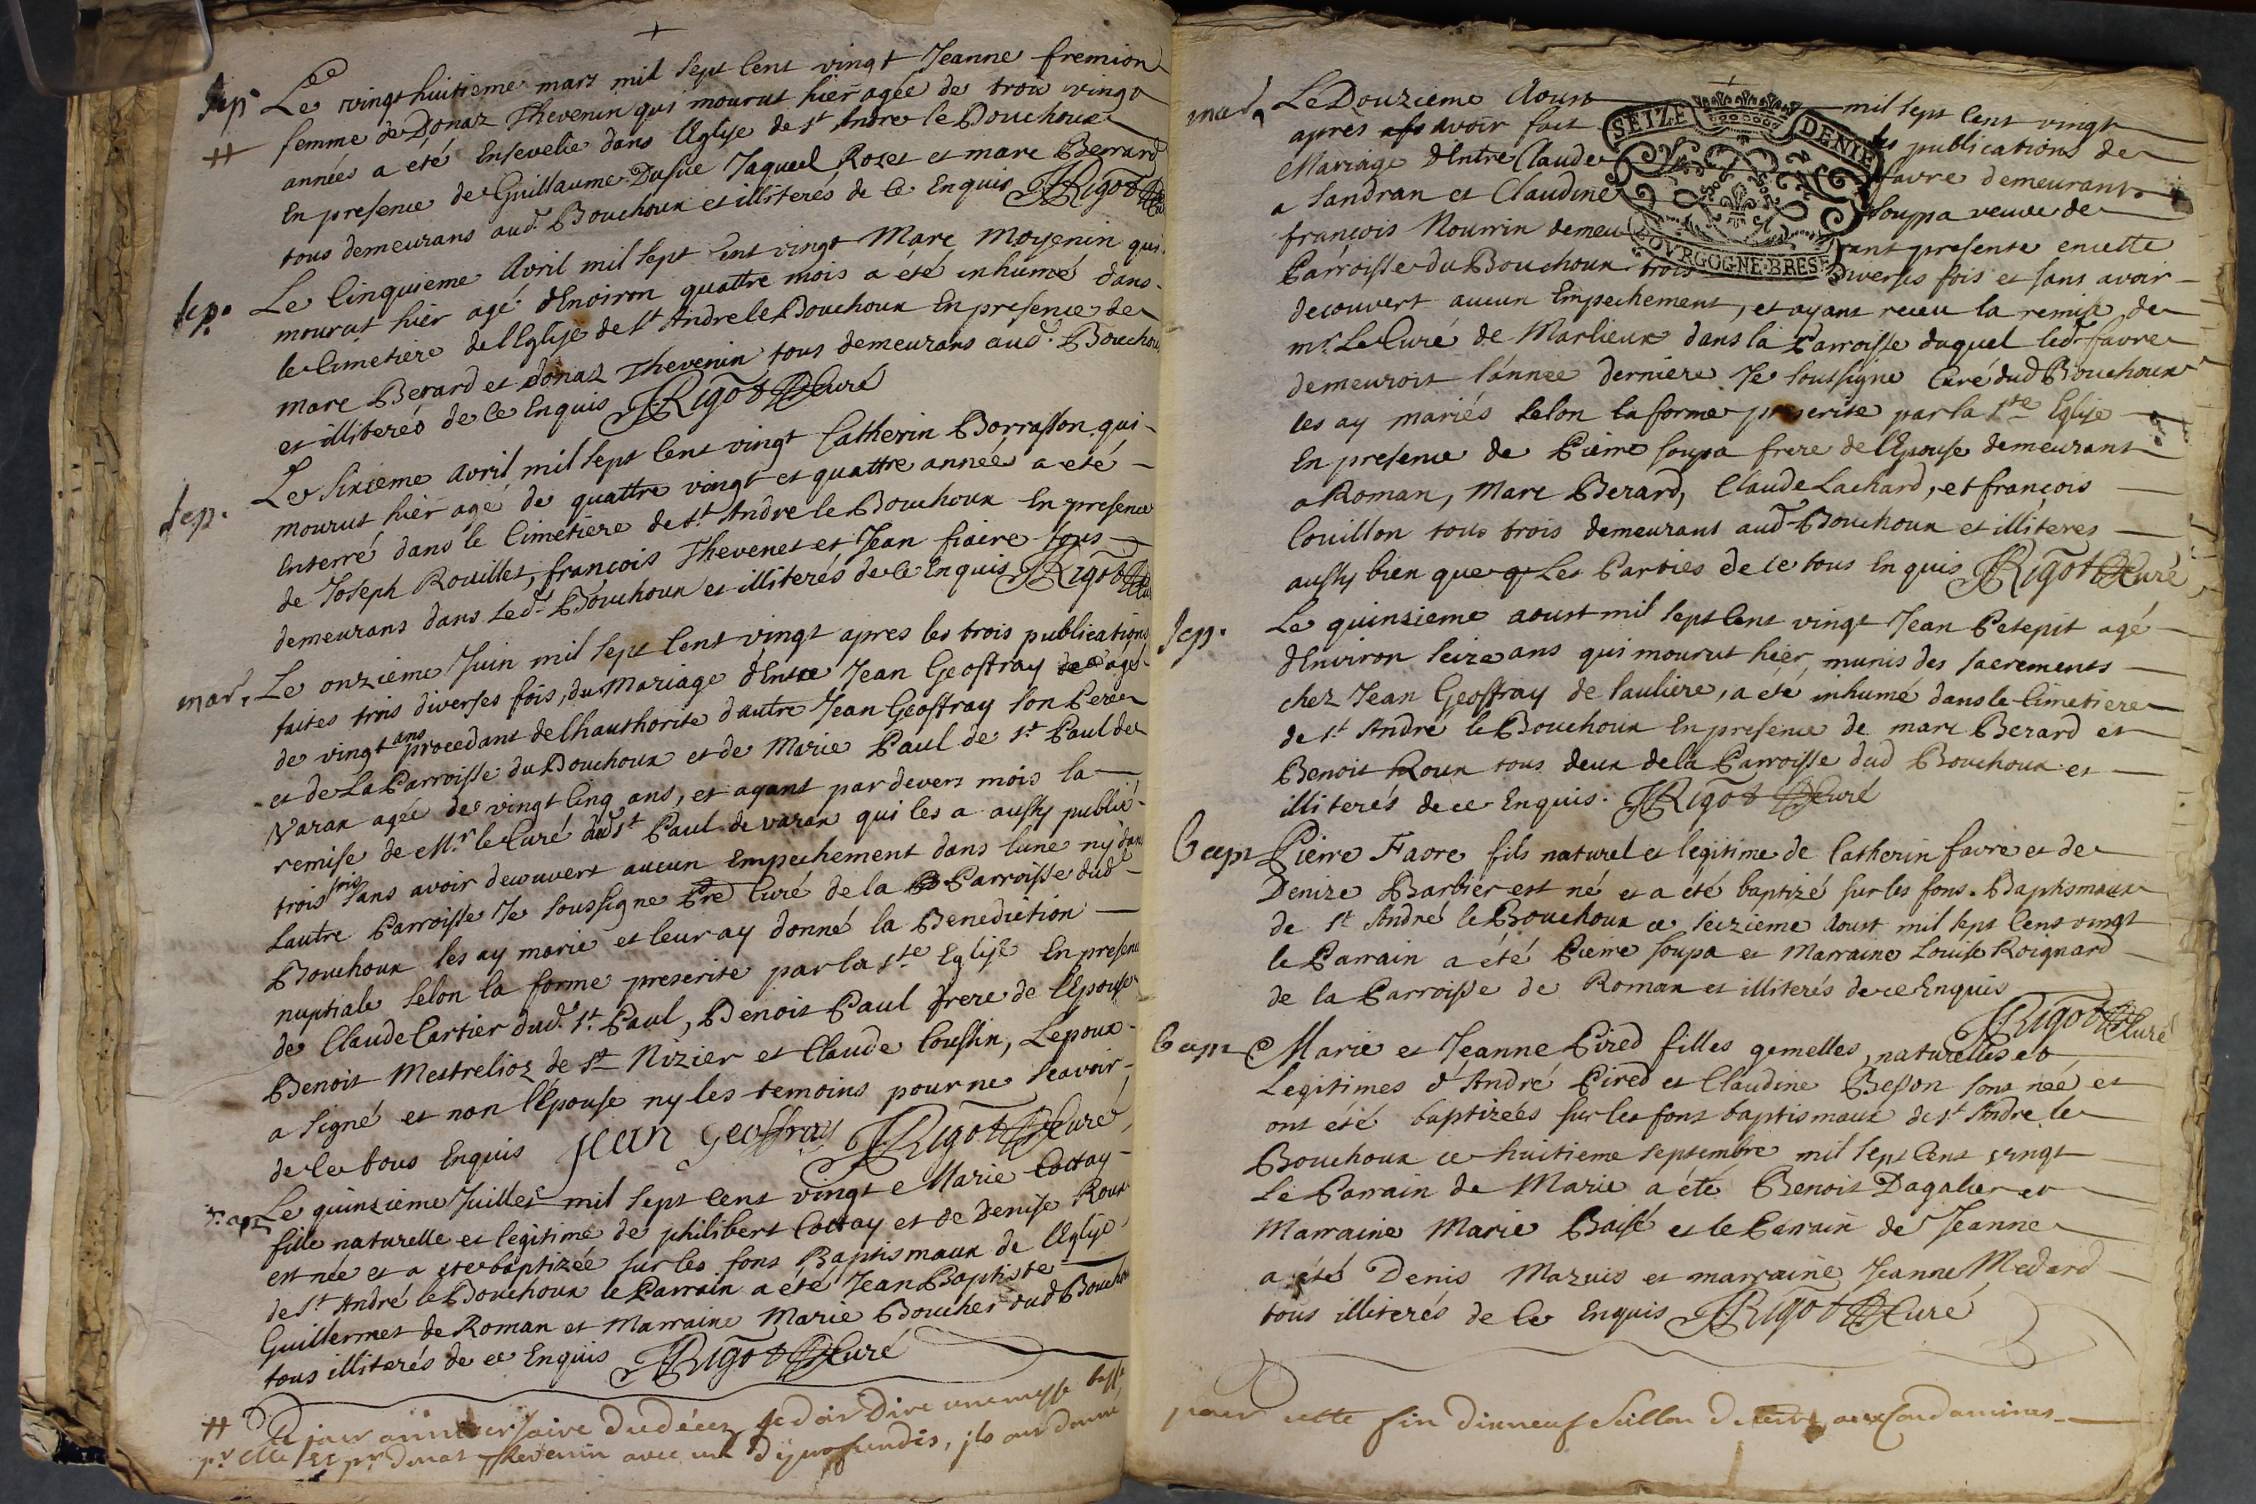 Sep.
Le vingthuitieme mars mil sept Cent vingt Jeanne fremion
femme de Donaz Thevenin qui mourut hier agée de trois vingt
années a eté Ensevelie dans l'Eglise de St Andre le Bouchoux
En presence de Guillaume Jaquel Rozet et marc Berard
tous demeurans aud. Bouchoux et illiterés de ce Enquis JRigot Curé
Sep.
Le Cinquieme Avril mil sept Cent vingt Marc Moyenin qui
mourut hier agé d'Enoiron quattre mois a été inhumé dans
le Cimetiere de l'Eglise de St Andre le Bouchoux En presence de
Marc Berard et donaz Thevenin tous demeurans aud. Bouchoux
et illiterés de ce Enquis JRigot Curé
Sep.
Le Sixieme Avril mil sept Cent vingt Catherin Borrasson qui
mourut hier agé de quattre vingt et quattre année a eté
Enterré dans le Cimetiere de St Andre le Bouchoux En presence
de Joseph Rouillet, françois Thevenet et Jean fiaire tous
demeurans dans led. Bouchoux et illiterés de ce Enquis JRigot Curé
mar.
Le onzieme Juin mil sept Cent vingt apres les trois publications
faites trois diverses fois, du Mariage d'Entre Jean Geoffray agé
de vingt ans procedant de l'hauthorite d'autre Jean Geoffray son Pere
et de La Parroisse du Bouchoux et de Marie Paul de St Paul de
Varax agée de vingt Cinq ans, et ayant par devers mois la
remise de Mr. le Curé dud St Paul de varax qui les a aussy publié
trois fois sans avoir decouvert aucun Empechement dans lune ny dans
lautre Parroisse Je Soussigne Pre Curé de la Parroisse dud
Bouchoux les ay marie et leur ay donné la Benediction
nuptiale selon la forme prescrite par la Ste Eglise En presence
de Claude Cartier dud. St. Paul, Benoit Paul frere de l'Epouse
Benoit Mestrelioz de St Nizier et Claude Coussin, Lepoux
a signé et non l'Epouse ny les temoins pour ne Scavoir
de ce tous Enquis Jean Geoffray JRigot Curé
Bapt
Le quinzieme Juillet mil sept Cent vingt Marie Cottay
fille naturelle et legitime de philibert Cottay et de Denise Roux
est née et a ete baptizée sur les fons Baptismaux de l'Eglise
de St André le Bouchoux le Parrain a été Jean Baptiste
Guillermet de Roman et Marraine Marie Boucher dud Bouchoux
tous illiterés de ce Enquis JRigot Curé
# Le jour anniversaire du décez Je dois Dire une messe basse
pr. elle et pr. donat Thevenin avec un Deprofundis, ils ont donné
mar.
Le Douzieme Aoust mil sept Cent vingt
apres avoir fait les publications de
Mariage d'Entre Claude favre demeurant
a Sandran et Claudine Souppa veuve de
françois Nourrin demeurant presente en cette
SEIZE DENIE
BOVRGOGNE·BRESE
Parroisse du Bouchoux trois Diverses fois et sans avoir
decouvert aucun Empechement, et ayant receu la remise de
mr. Le Curé de Marlieux dans la Parroisse duquel led favre
demeuroit l'année derniere. Je soussigne Curé dud Bouchoux
les ay mariés selon la forme prescrite par la Ste Eglise
En presence de Pierre Soupa frere de l'Epouse demeurant
a Roman, Marc Berard, Claude Lachard, et françois
Couillon tous trois demeurant aud Bouchoux et illiteres
aussy bien que Les Parties de ce tous Enquis JRigot Curé
Sep.
Le quinzieme aoust mil sept Cent vingt Jean Petepit agé
d'Environ Seize ans qui mourut hier, munis des Sacrements
chez Jean Geoffray de Sauliere, a été inhumé dans le Cimetiere
de St. André le Bouchoux En presence de marc Berard et
Benoit Roux tous deux de la Parroisse dud Bouchoux et
illiterés de ce Enquis. JRigot Curé
Bapt
Pierre Favre fils naturel et legitime de Catherin favre et de
Denize Barbier est né et a été baptizé sur les fons Baptismaux
de St André le Bouchoux ce Seizieme Aoust mil sept Cent vingt
le Parrain a été Pierre Soupa et Marraine Louise Roignard
de la Parroisse de Roman et illiterés de ce Enquis
JRigot Curé
Bapt
Marie et Jeanne Pired filles gemelles, naturelles et
Legitimes d'André Pired et Claudine Besson sont née et
ont été baptizeés sur les fons baptismaux de St Andre le
Bouchoux ce huitieme Septembre mil sept Cent vingt
Le Parrain de Marie a été Benoit Dagalier et
Marraine Marie Baisé et le Parrain de Jeanne
a été Denis Mazuis et marraine Jeanne Medard
tous illiterés de ce Enquis JRigot Curé
pour cette fin dixneuf Seillon de terre aux Condamines